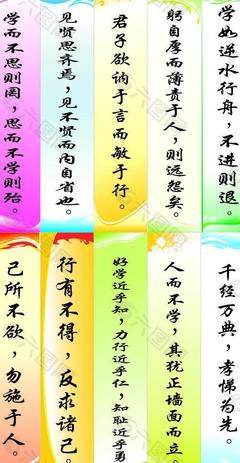 学而不思则罔，思而不学则殆。
见贤思齐焉，见不贤而内自省也。
君子欲讷于言而敏于行。
躬自厚而薄责于人，则远怨矣。
学如逆水行舟，不进则退。
己所不欲，勿施于人。
行有不得，反求诸己。
好学近乎知，力行近乎仁，知耻近乎勇
人而不学，其犹正墙面而立。
千经万典，孝悌为先。